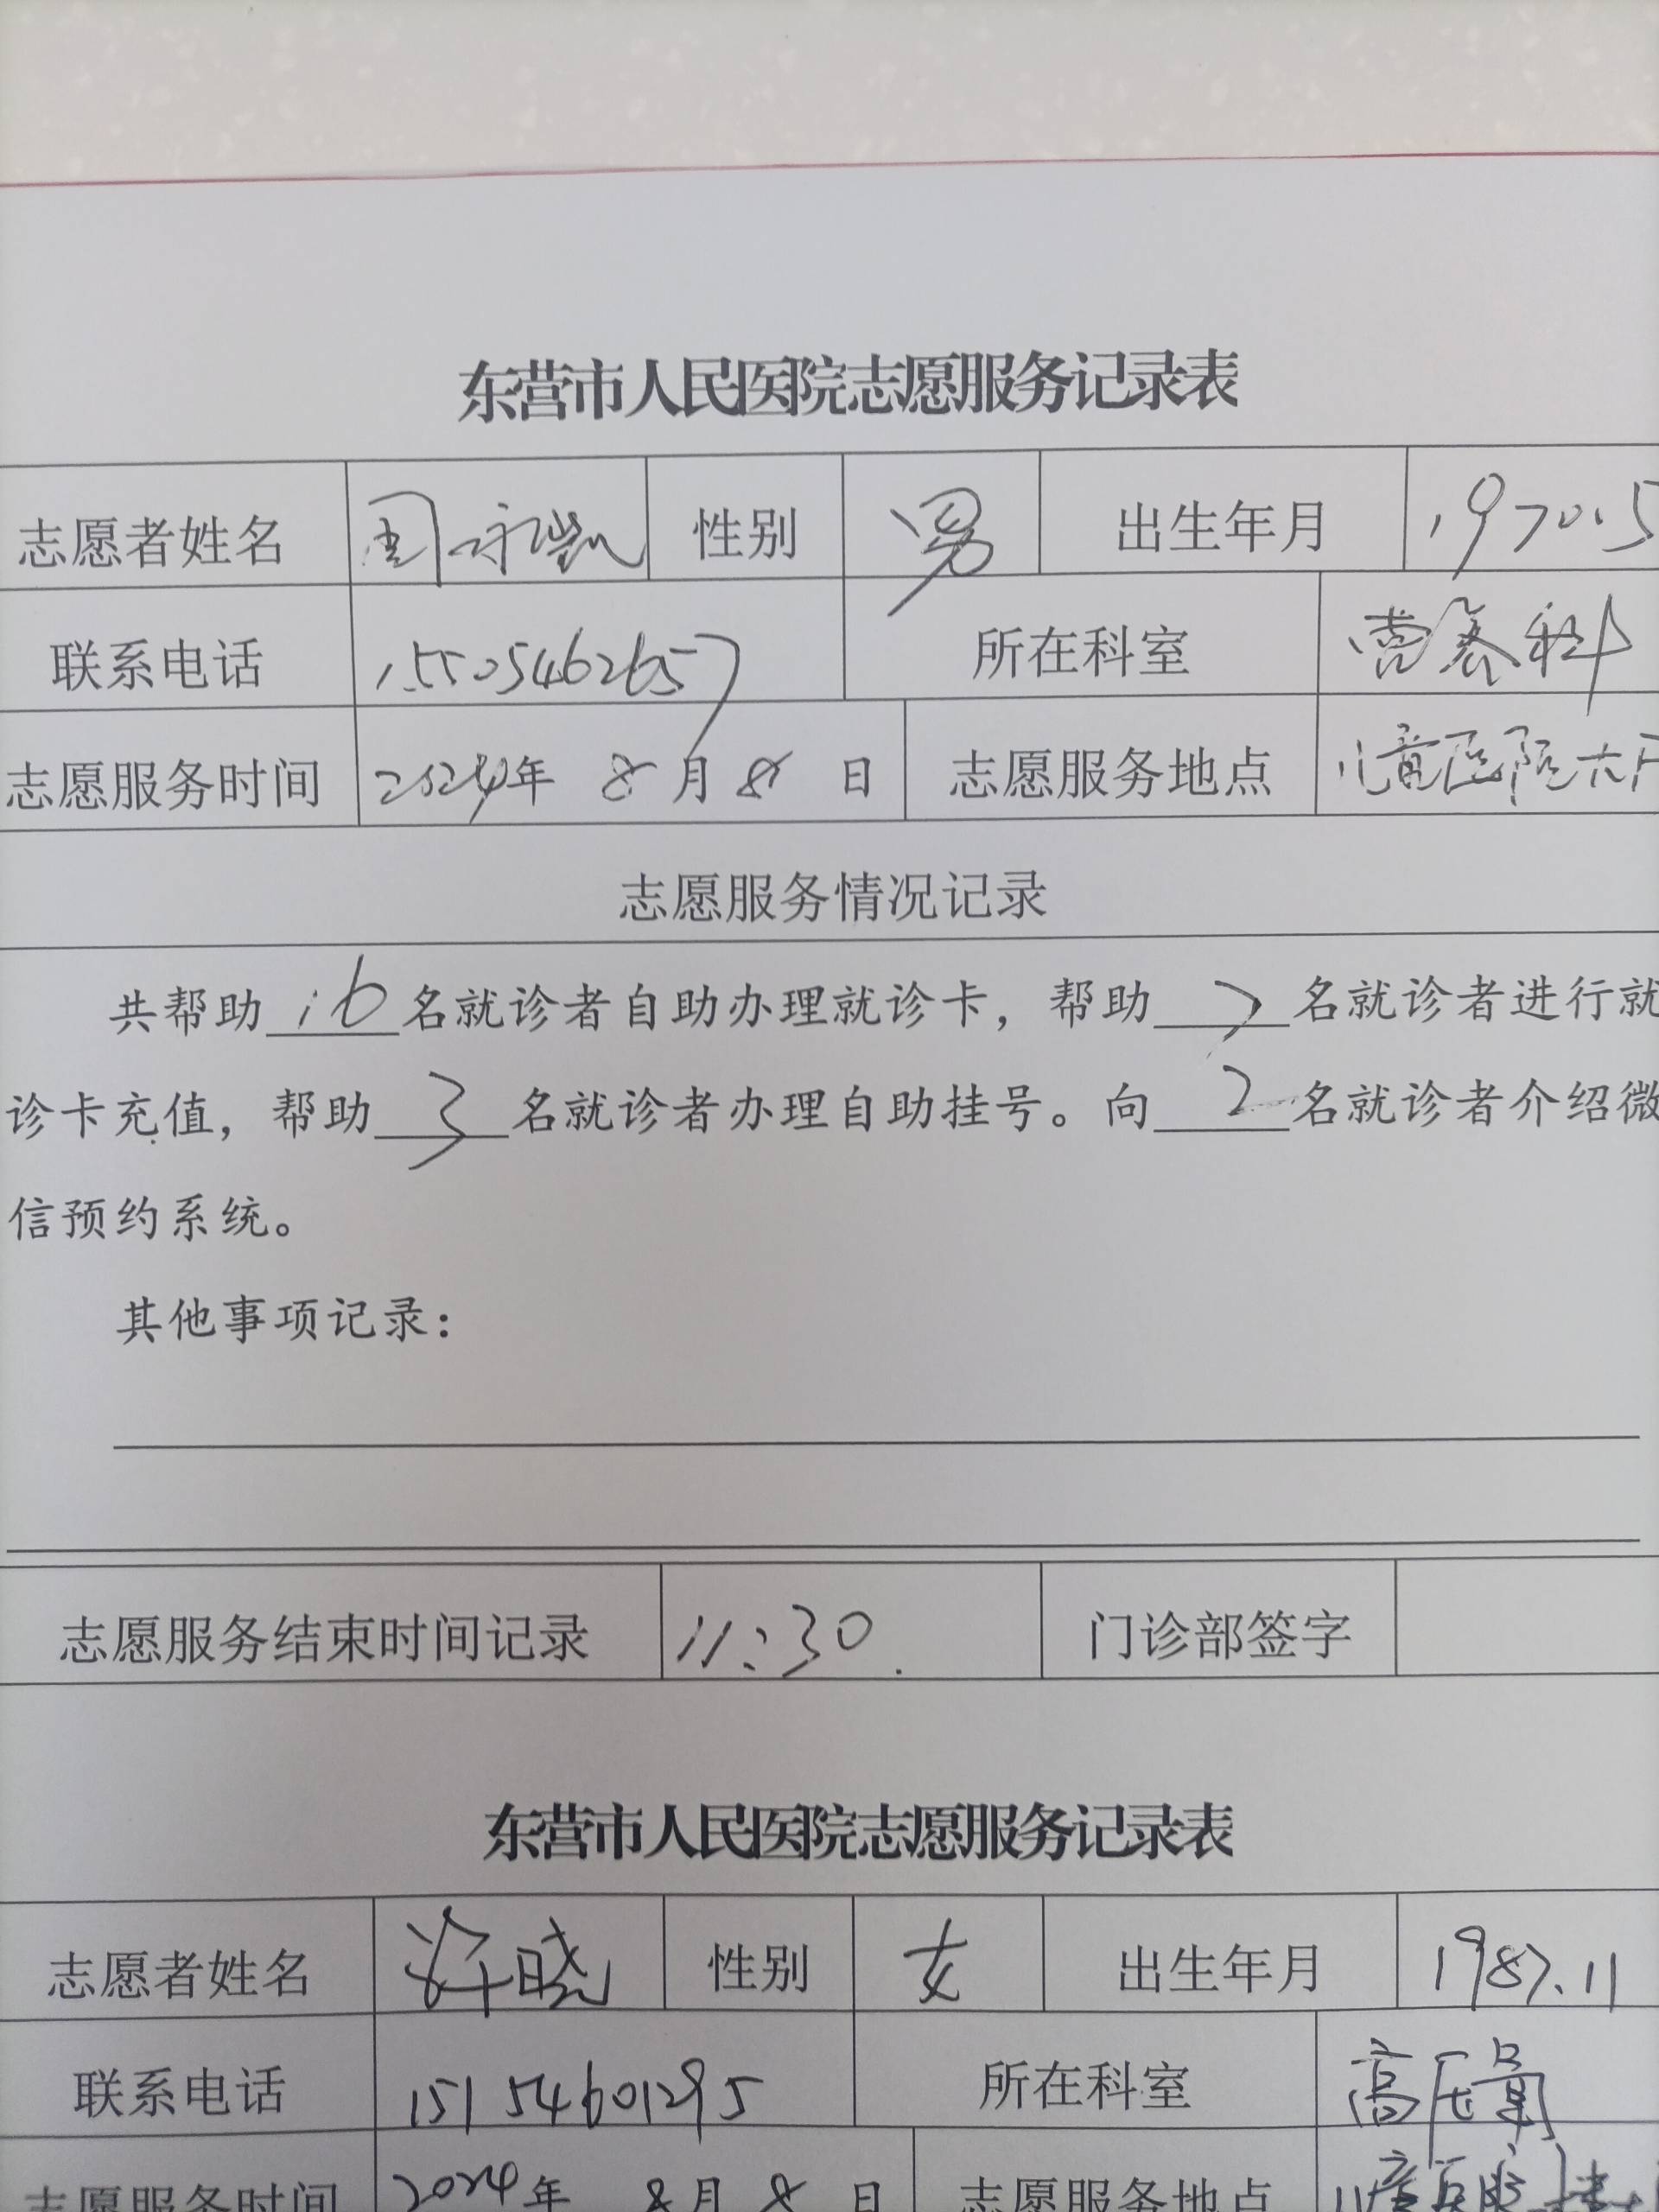 东营市人民医院志愿服务记录表
志愿者姓名 周永凯 性别 男 出生年月 1970.5
联系电话 15505462657 所在科室 营养科
志愿服务时间 2024年 8月8日 志愿服务地点 儿童医院大厅
志愿服务情况记录
共帮助16名就诊者自助办理就诊卡，帮助7名就诊者进行就
诊卡充值，帮助3名就诊者办理自助挂号。向2名就诊者介绍微
信预约系统。
其他事项记录：
志愿服务结束时间记录 11:30. 门诊部签字
东营市人民医院志愿服务记录表
志愿者姓名 许晓 性别 女 出生年月 1987.11
联系电话 15154601295 所在科室 高压氧
志愿服务时间 2024年 8月8日 志愿服务地点 儿童医院